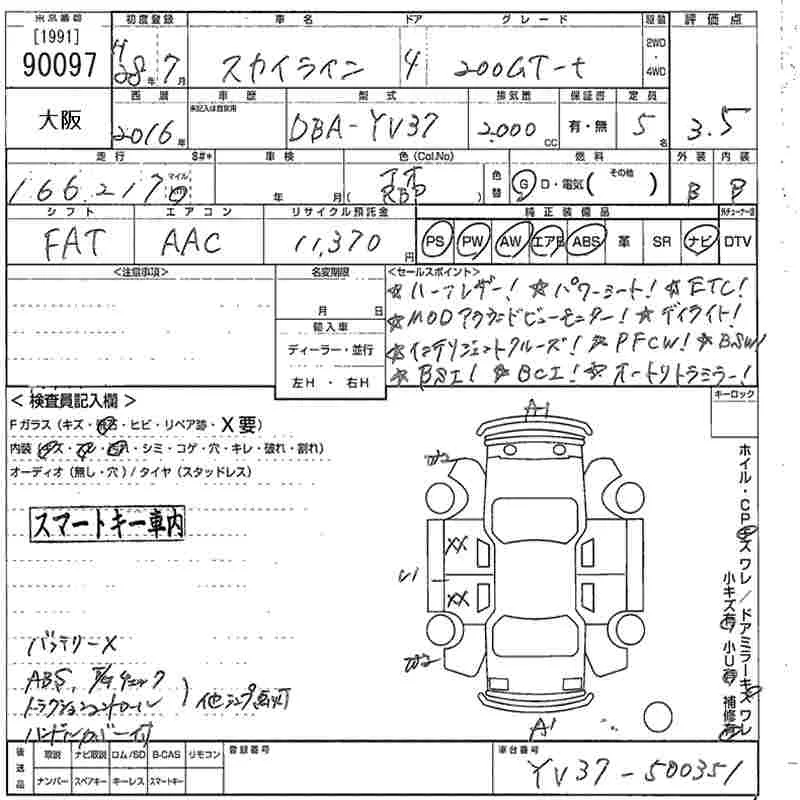 東京番号 初度登録 車名 ドア グレード 駆動 評価点
[1991]
90097
H28年7月 スカイライン 4 200GT-t 2WD・4WD 3.5
大阪
西暦 車歴 型式 排気量 保証書 定員
2016年 未記入は自家用 DBA-YV37 2,000cc 有・無 5名
走行 S#* 車検 色(Col.No) 色替 燃料 外装 内装
166,217 マイル 年 月 ( RBG ) G D・電気( その他 ) B B
シフト エアコン リサイクル預託金 純正装備品
FAT AAC 11,370円 PS PW AW エアB ABS 革 SR ナビ DTV
<注意事項> 名変期限 <セールスポイント>
月 日
輸入車
ディーラー・並行
左H・右H
☆ハーフレザー!☆パワーシート!☆ETC!
☆MODアラウンドビューモニター!☆デイライト!
☆インテリジェントクルーズ!☆PFCW!☆BSW!
☆BSI!☆BCI!☆オートリトラミラー!
<検査員記入欄> キーロック
Fガラス(キズ・飛石・ヒビ・リペア跡・X要)
内装(キズ・スレ・汚れ・シミ・コゲ・穴・キレ・破れ・割れ)
オーディオ(無し・穴)/タイヤ(スタッドレス)
スマートキー車内
A1
XX
XX
U1
A1
ホイル・CPキズワレ/ドアミラーキズワレ
小キズ有 小U有 補修有
バッテリーX
ABS、チェック
トラクションコントロール 他ランプ点灯
ハンドルカバー付
後送品 取説 ナビ取説 ロム/SD B-CAS リモコン 登録番号 車台番号
ナンバー スペアキー キーレス スマートキー YV37-500351